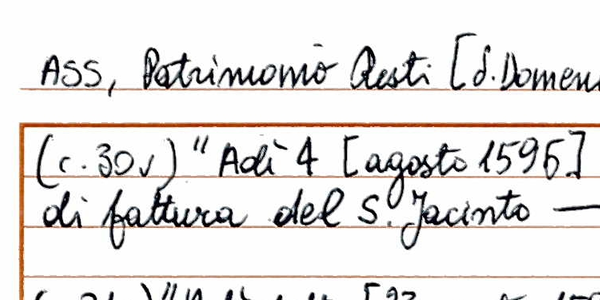 ASS, Patrimonio Resti [S. Domen
(c. 30v) "Adì 4 [agosto 1596]
di fattura del S. Jacinto —